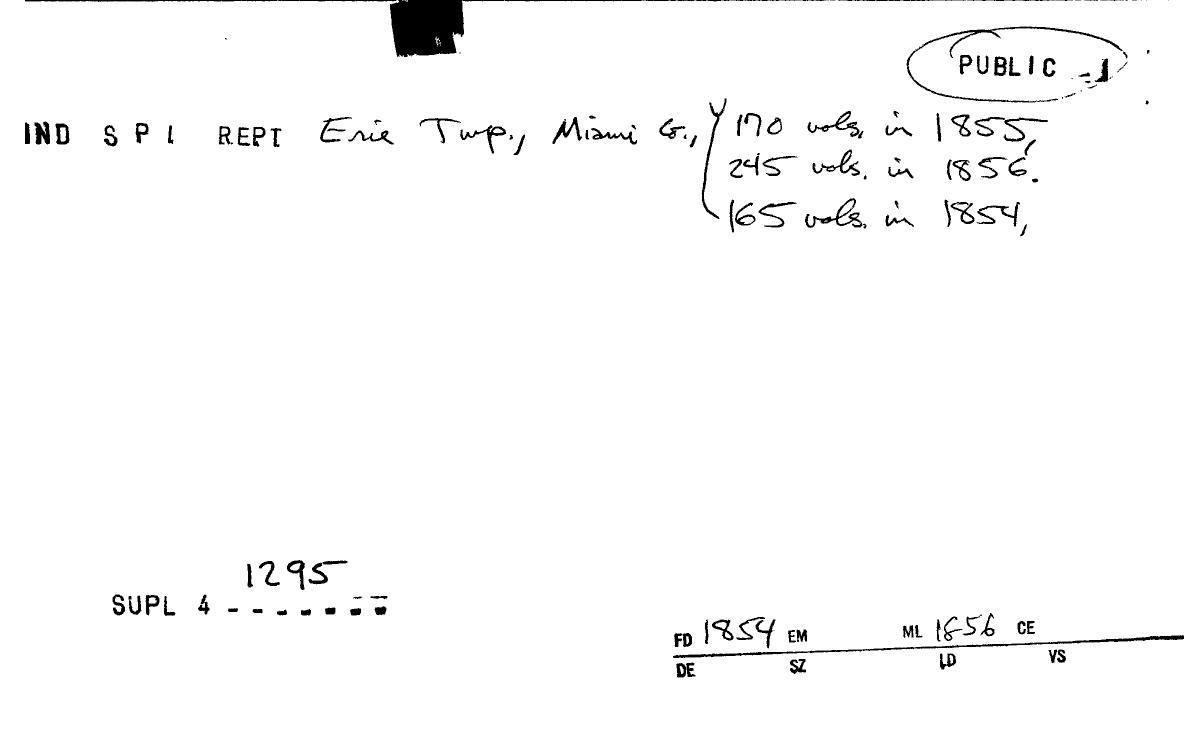 PUBLIC - 1
IND S P I REPT Erie Twp., Miami Co., 170 vols. in 1855,
245 vols. in 1856.
165 vols. in 1854,
1295
SUPL 4 - - - - - - -
FD 1854 EM ML 1856 CE
DE SZ LD VS